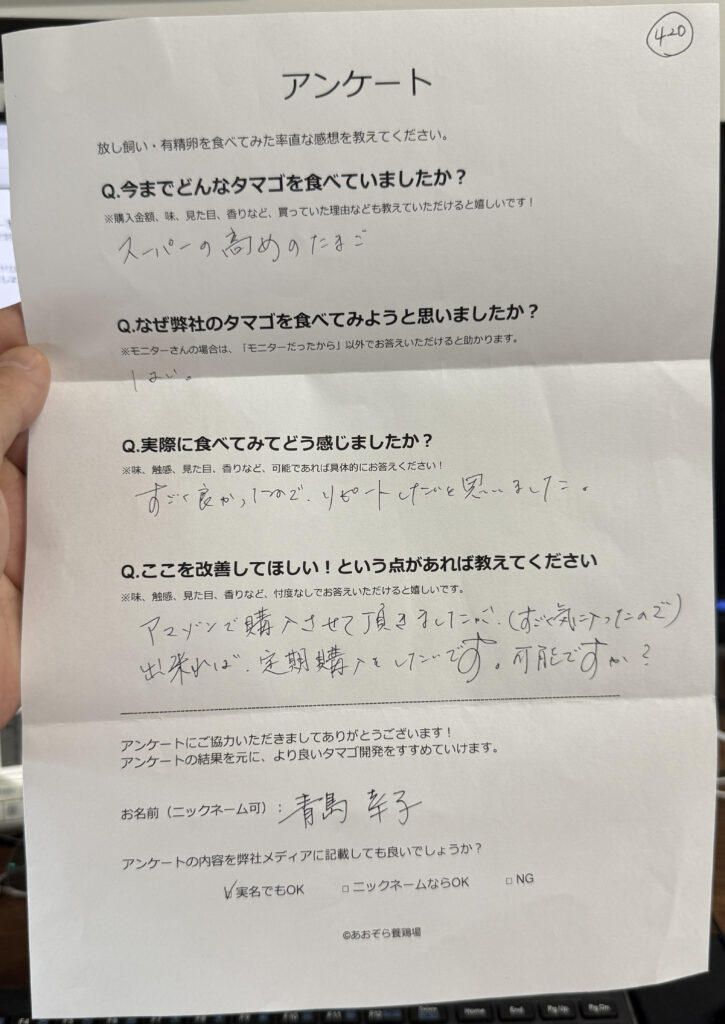 420
アンケート
放し飼い・有精卵を食べてみた率直な感想を教えてください。
Q.今までどんなタマゴを食べていましたか？
※購入金額、味、見た目、香りなど、買っていた理由なども教えていただけると嬉しいです！
スーパーの高めのたまご
Q.なぜ弊社のタマゴを食べてみようと思いましたか？
※モニターさんの場合は、「モニターだったから」以外でお答えいただけると助かります。
はい。
Q.実際に食べてみてどう感じましたか？
※味、触感、見た目、香りなど、可能であれば具体的にお答えください！
すごく良かったので、リピートしたいと思いました。
Q.ここを改善してほしい！という点があれば教えてください
※味、触感、見た目、香りなど、忖度なしでお答えいただけると嬉しいです。
アマゾンで購入させて頂きましたが、(すごく気に入ったので)
出来れば、定期購入をしたいです。可能ですか？
アンケートにご協力いただきましてありがとうございます！
アンケートの結果を元に、より良いタマゴ開発をすすめていけます。
お名前（ニックネーム可）：青島 幸子
アンケートの内容を弊社メディアに記載しても良いでしょうか？
☑実名でもOK □ニックネームならOK □NG
©あおぞら養鶏場
Home End Pg Up Pg Dn